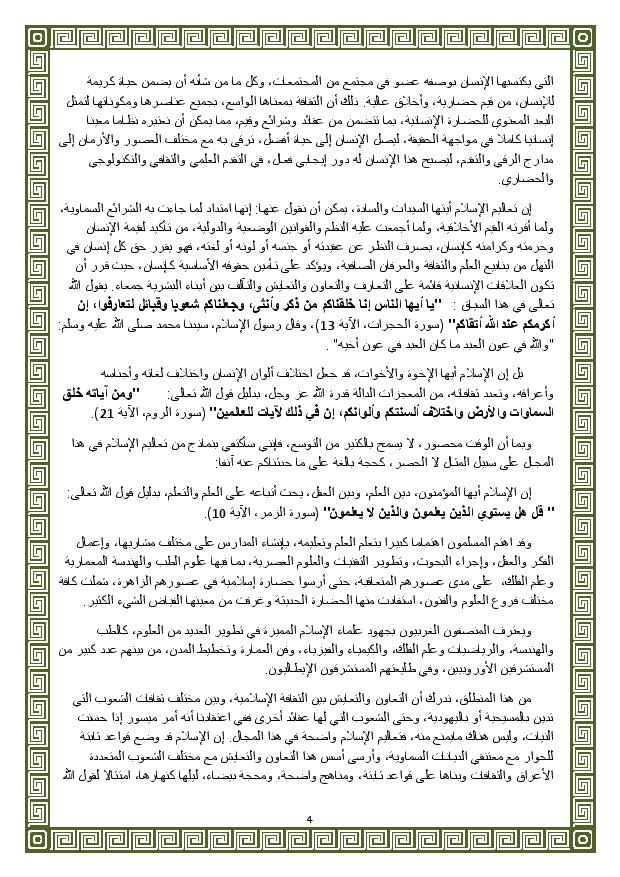 التي يكتسبها الإنسان بوصفه عضو في مجتمع من المجتمعات، وكل ما من شأنه أن يضمن حياة كريمة
للإنسان، من قيم حضارية، وأخلاق عالية. ذلك أن الثقافة بمعناها الواسع، بجميع عناصرها ومكوناتها لتمثل
البعد المعنوي للحضارة الإنسانية، بما تتضمن من عقائد وشرائع وقيم، مما يمكن أن نعتبره نظاما معينا
إنسانيا كاملا في مواجهة الحقيقة، ليصل الإنسان إلى حياة أفضل، ترقى به مع مختلف العصور والأزمان إلى
مدارج الرقي والتقدم، ليصبح هذا الإنسان له دور إيجابي فعل، في التقدم العلمي والثقافي والتكنولوجي
والحضاري.
إن تعاليم الإسلام أيتها السيدات والسادة، يمكن أن نقول عنها: إنها امتداد لما جاءت به الشرائع السماوية،
ولما أقرته القيم الأخلاقية، ولما أجمعت عليه النظم والقوانين الوضعية والدولية، من تأكيد لقيمة الإنسان
وحرمته وكرامته كإنسان، بصرف النظر عن عقيدته أو جنسه أو لونه أو لغته، فهو يقرر حق كل إنسان في
النهل من ينابيع العلم والثقافة والعرفان الصافية، ويؤكد على تأمين حقوقه الأساسية كإنسان، حيث قرر أن
تكون العلاقات الإنسانية قائمة على التعارف والتعاون والتعايش والتآلف بين أبناء البشرية جمعاء. يقول الله
تعالى في هذا السياق : "يا أيها الناس إنا خلقناكم من ذكر وأنثى، وجعلناكم شعوبا وقبائل لتعارفوا، إن
أكرمكم عند الله أتقاكم" (سورة الحجرات، الآية 13)، وقال رسول الإسلام، سيبنا محمد صلى الله عليه وسلم:
"والله في عون العبد ما كان العبد في عون أخيه" .
بل إن الإسلام أيها الإخوة والأخوات، قد جعل اختلاف ألوان الإنسان واختلاف لغاته وأجناسه
وأعرافه، وتعدد ثقافاته، من المعجزات الدالة قدرة الله عز وجل، بدليل قول الله تعالى: "ومن آياته خلق
السماوات والأرض واختلاف ألسنتكم وألوانكم، إن في ذلك لآيات للعالمين" (سورة الروم، الآية 21).
وبما أن الوقت محصور، لا يسمح بالكثير من التوسع، فإنني سأكتفي بنماذج من تعاليم الإسلام في هذا
المجال على سبيل المثال لا الحصر، كحجة بالغة على ما حدثناكم عنه آنفا:
إن الإسلام أيها المؤمنون، دين العلم، ودين العقل، يحث أتباعه على العلم والتعلم، بدليل قول الله تعالى:
" قل هل يستوي الذين يعلمون والذين لا يعلمون" (سورة الزمر، الآية 10).
وقد اهتم المسلمون اهتماما كبيرا بتعلم العلم وتعليمه، بإنشاء المدارس على مختلف مشاربها، وإعمال
الفكر والعقل، وإجراء البحوث، وتطوير التقنيات والعلوم العصرية، بما فيها علوم الطب والهندسة المعمارية
وعلم الفلك، على مدى عصورهم المتعاقبة، حتى أرسوا حضارة إسلامية في عصورهم الزاهرة، شملت كافة
مختلف فروع العلوم والفنون، استفادت منها الحضارة الحديثة وغرفت من معينها الفياض الشيء الكثير.
ويعترف المنصفون الغربيون بجهود علماء الإسلام المميزة في تطوير العديد من العلوم، كالطب
والهندسة، والرياضيات وعلم الفلك، والكيمياء والفيزياء، وفن العمارة وتخطيط المدن، من بينهم عدد كبير من
المستشرقين الأوروبيين، وفي طليعتهم المستشرقون الإيطاليون.
من هذا المنطلق، ندرك أن التعاون والتعايش بين الثقافة الإسلامية، وبين مختلف ثقافات الشعوب التي
تدين بالمسيحية أو باليهودية، وحتى الشعوب التي لها عقائد أخرى ففي اعتقادنا أنه أمر ميسور إذا حسنت
النيات، وليس هناك مايمنع منه، فتعاليم الإسلام واضحة في هذا المجال. إن الإسلام قد وضع قواعد ثابتة
للحوار مع معتنقي الديانات السماوية، وأرسى أسس هذا التعاون والتعايش مع مختلف الشعوب المتعددة
الأعراق والثقافات وبناها على قواعد ثابتة، ومناهج واضحة، ومحجة بيضاء، ليلها كنهارها، امتثالا لقول الله
4